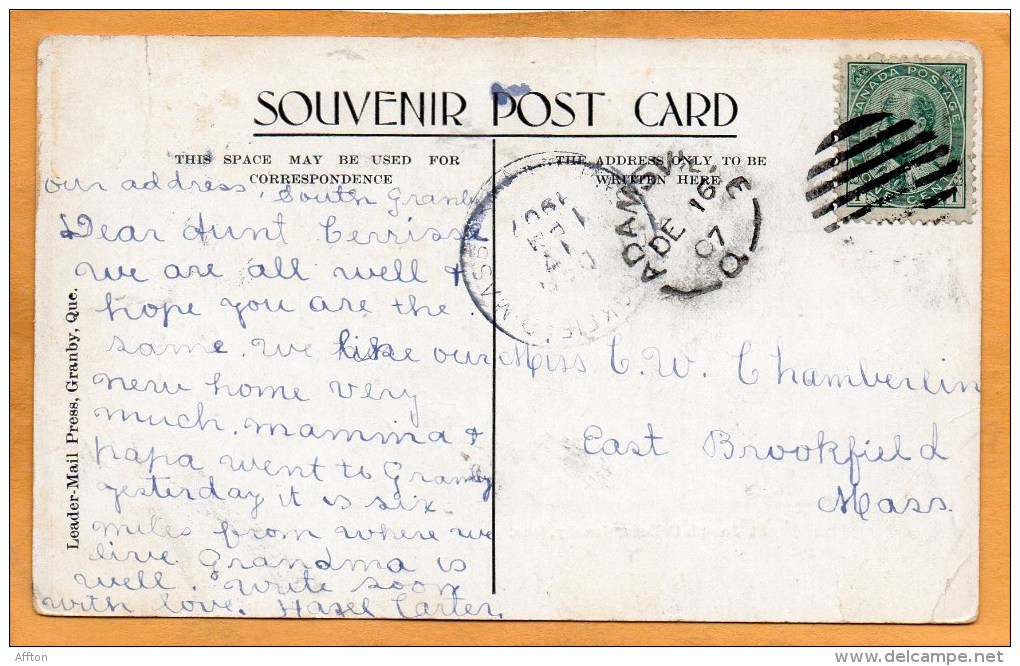 SOUVENIR POST CARD
THIS SPACE MAY BE USED FOR
CORRESPONDENCE
THE ADDRESS ONLY TO BE
WRITTEN HERE
CANADA POSTAGE
DE 16
07
1907
MASS
our address South Granby
Dear Aunt
we are all well &
hope you are the
same. We like our
new home very
much. mamma &
papa went to Granby
yesterday it is six
miles from where we
live Grandma is
well. Write soon
with love. Hazel Carter.
Miss C. W. Chamberlin
East Brookfield
Mass.
Leader-Mail Press, Granby, Que.
Affton
http://www.delcampe.net